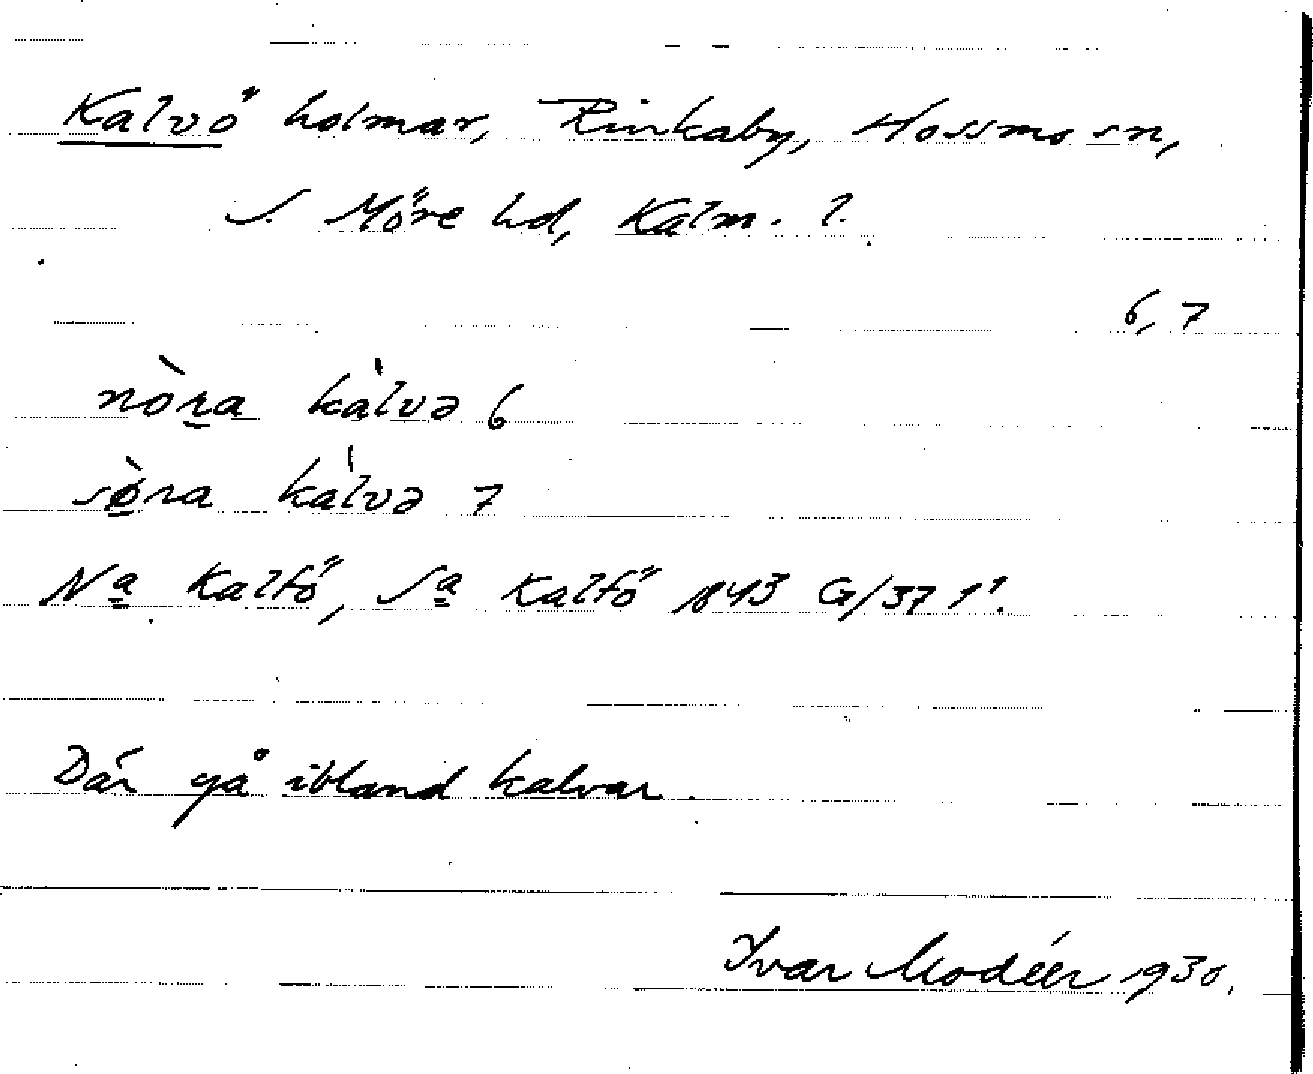 Kalvö holmar, Rinkaby, Hossmo sn,
S. Möre hd, Kalm. l.
6, 7
nòra kàlvə 6
sèra kàlvə 7
Na Kalfö, Sa Kalfö 1843 G/37 1¹.
Där gå ibland kalvar.
Ivar Modéer 1930.